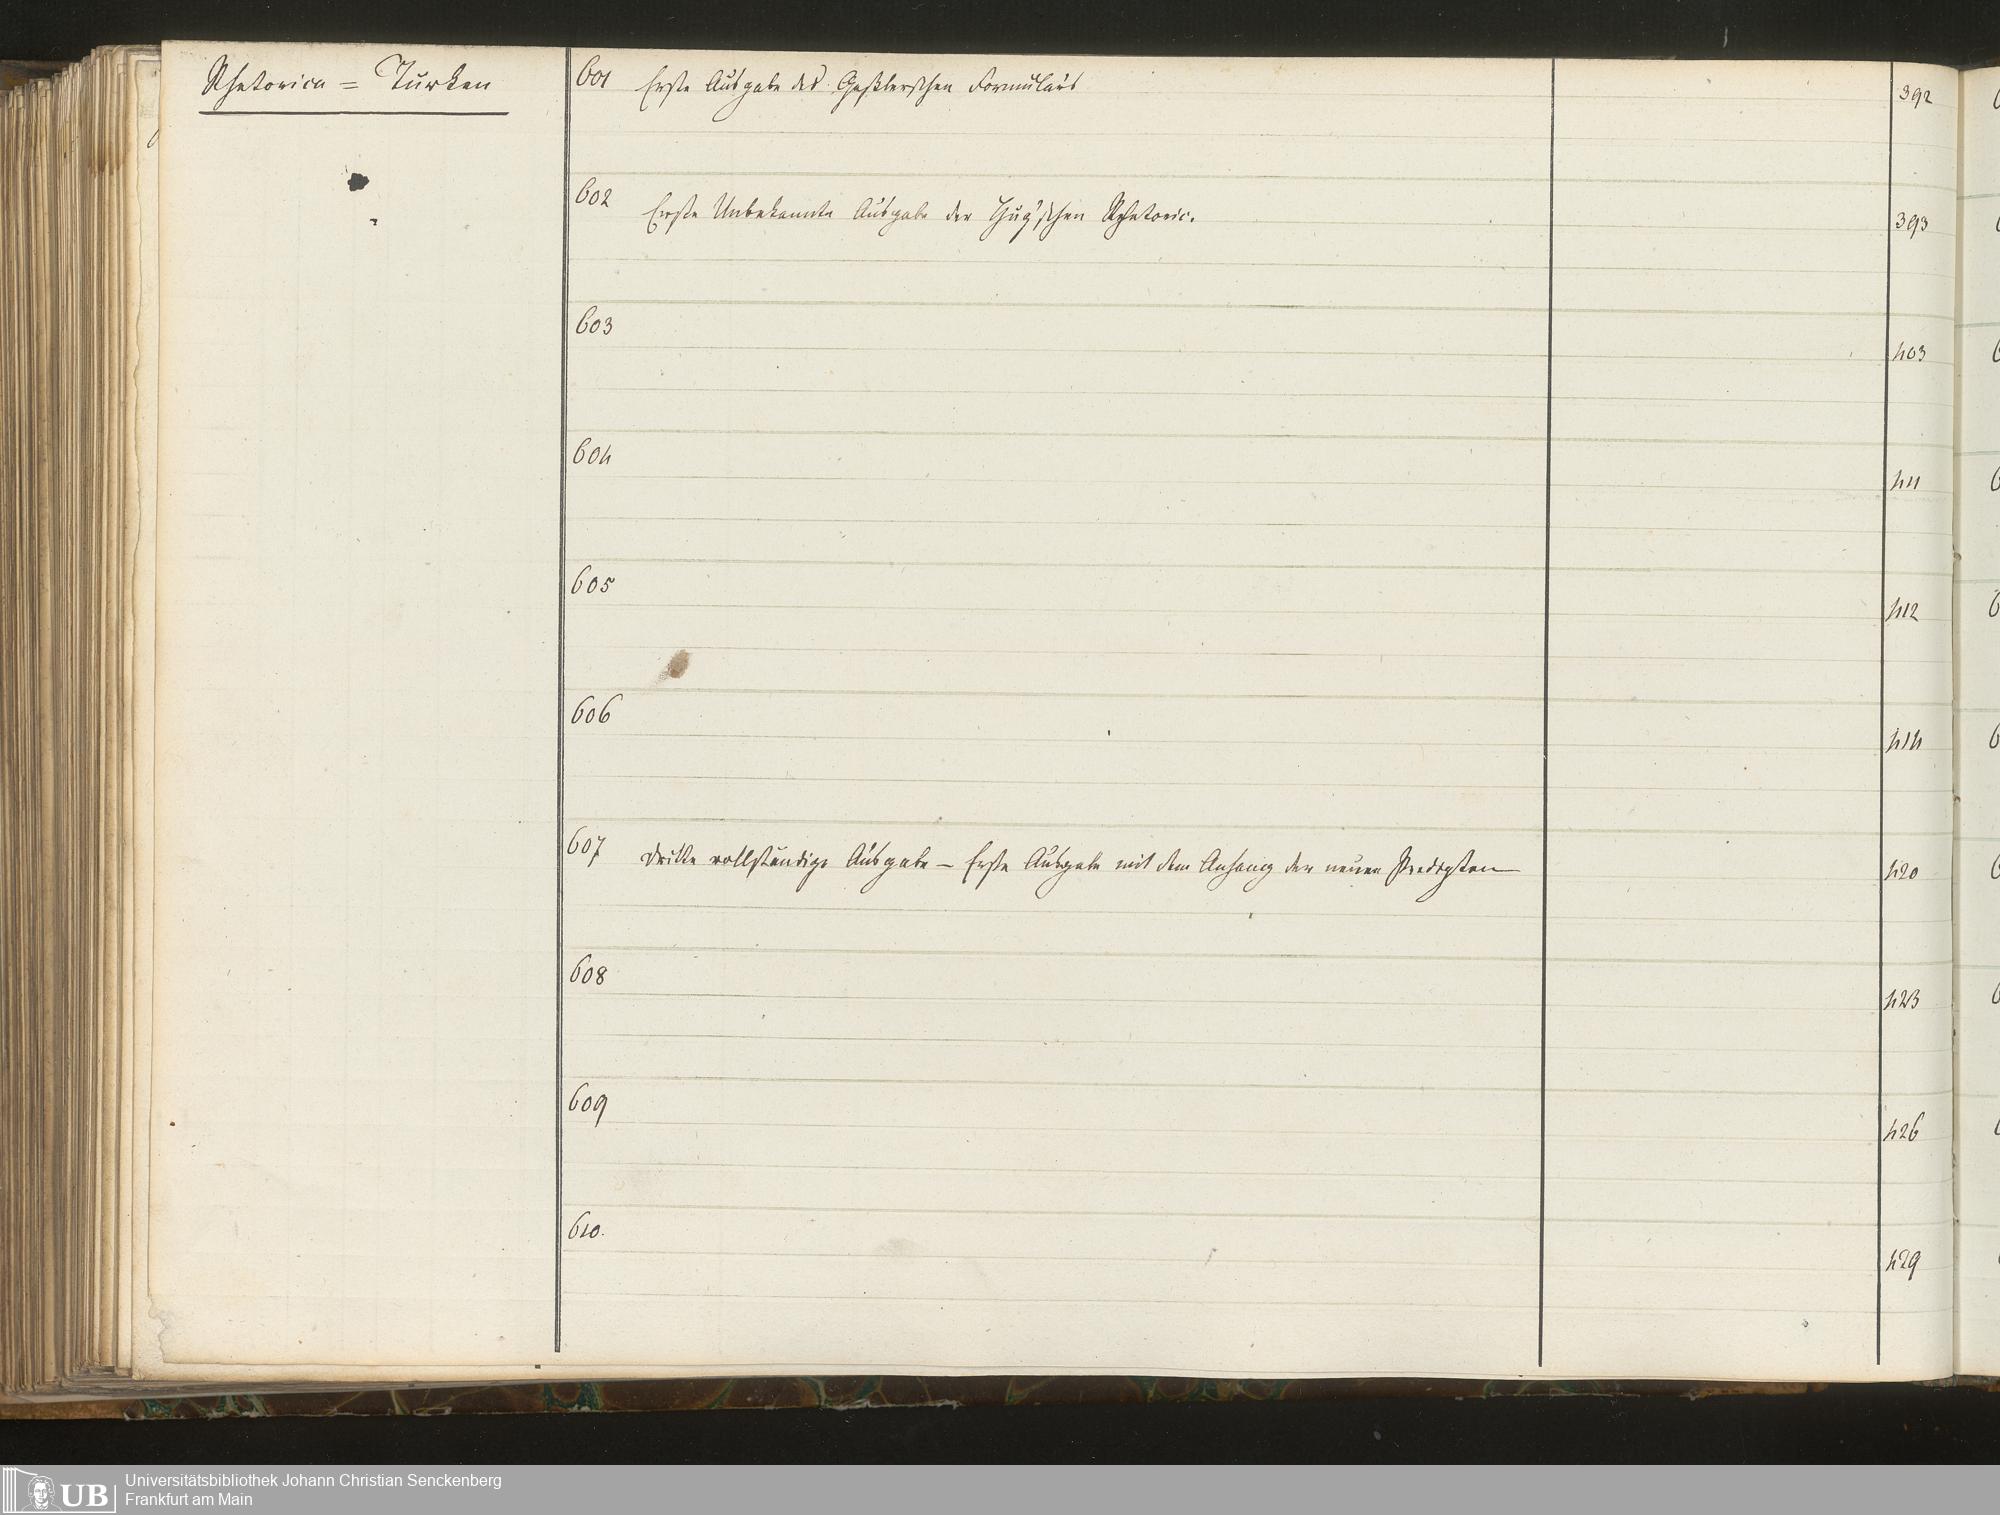 Rhetorica = Turken
601 Erste Ausgabe des Geßlerschen Formulars 392
602 Erste Unbekannte Ausgabe der Hug'schen Rhetoric. 393
603 403
604 411
605 412
606 414
607 Dritte vollständige Ausgabe – Erste Ausgabe mit dem Anhang der neuen Predigten 420
608 423
609 426
610. 429
UB
Universitätsbibliothek Johann Christian Senckenberg
Frankfurt am Main